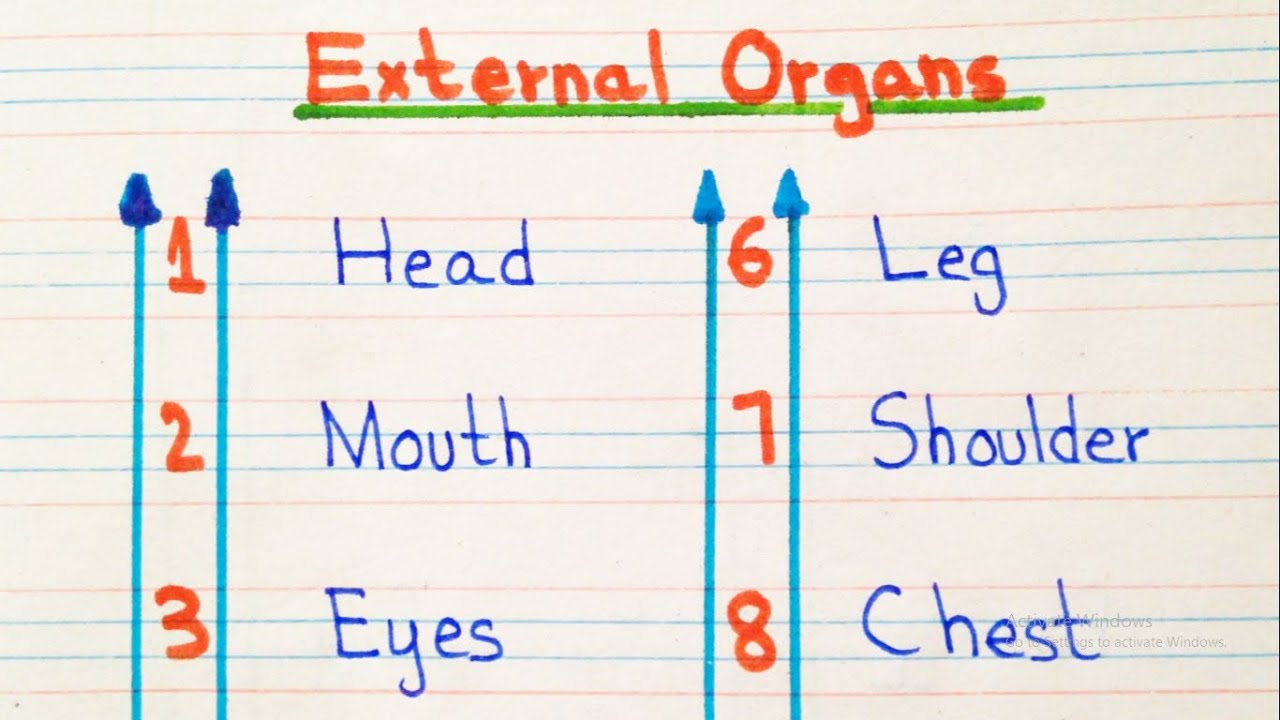 External Organs
1 Head
2 Mouth
3 Eyes
6 Leg
7 Shoulder
8 Chest
Activate Windows
Go to Settings to activate Windows.